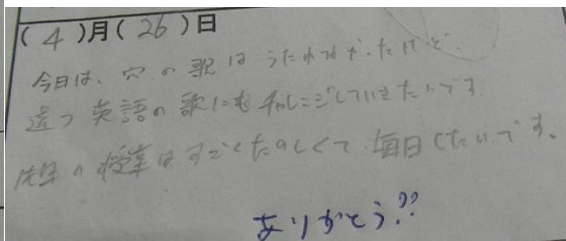 (4)月(26)日
今日は、穴の歌はうたわなかったけど、
違う英語の歌にも私にこしていきたいです
先生の授業はすごくたのしくて毎日したいです。
ありがとう??